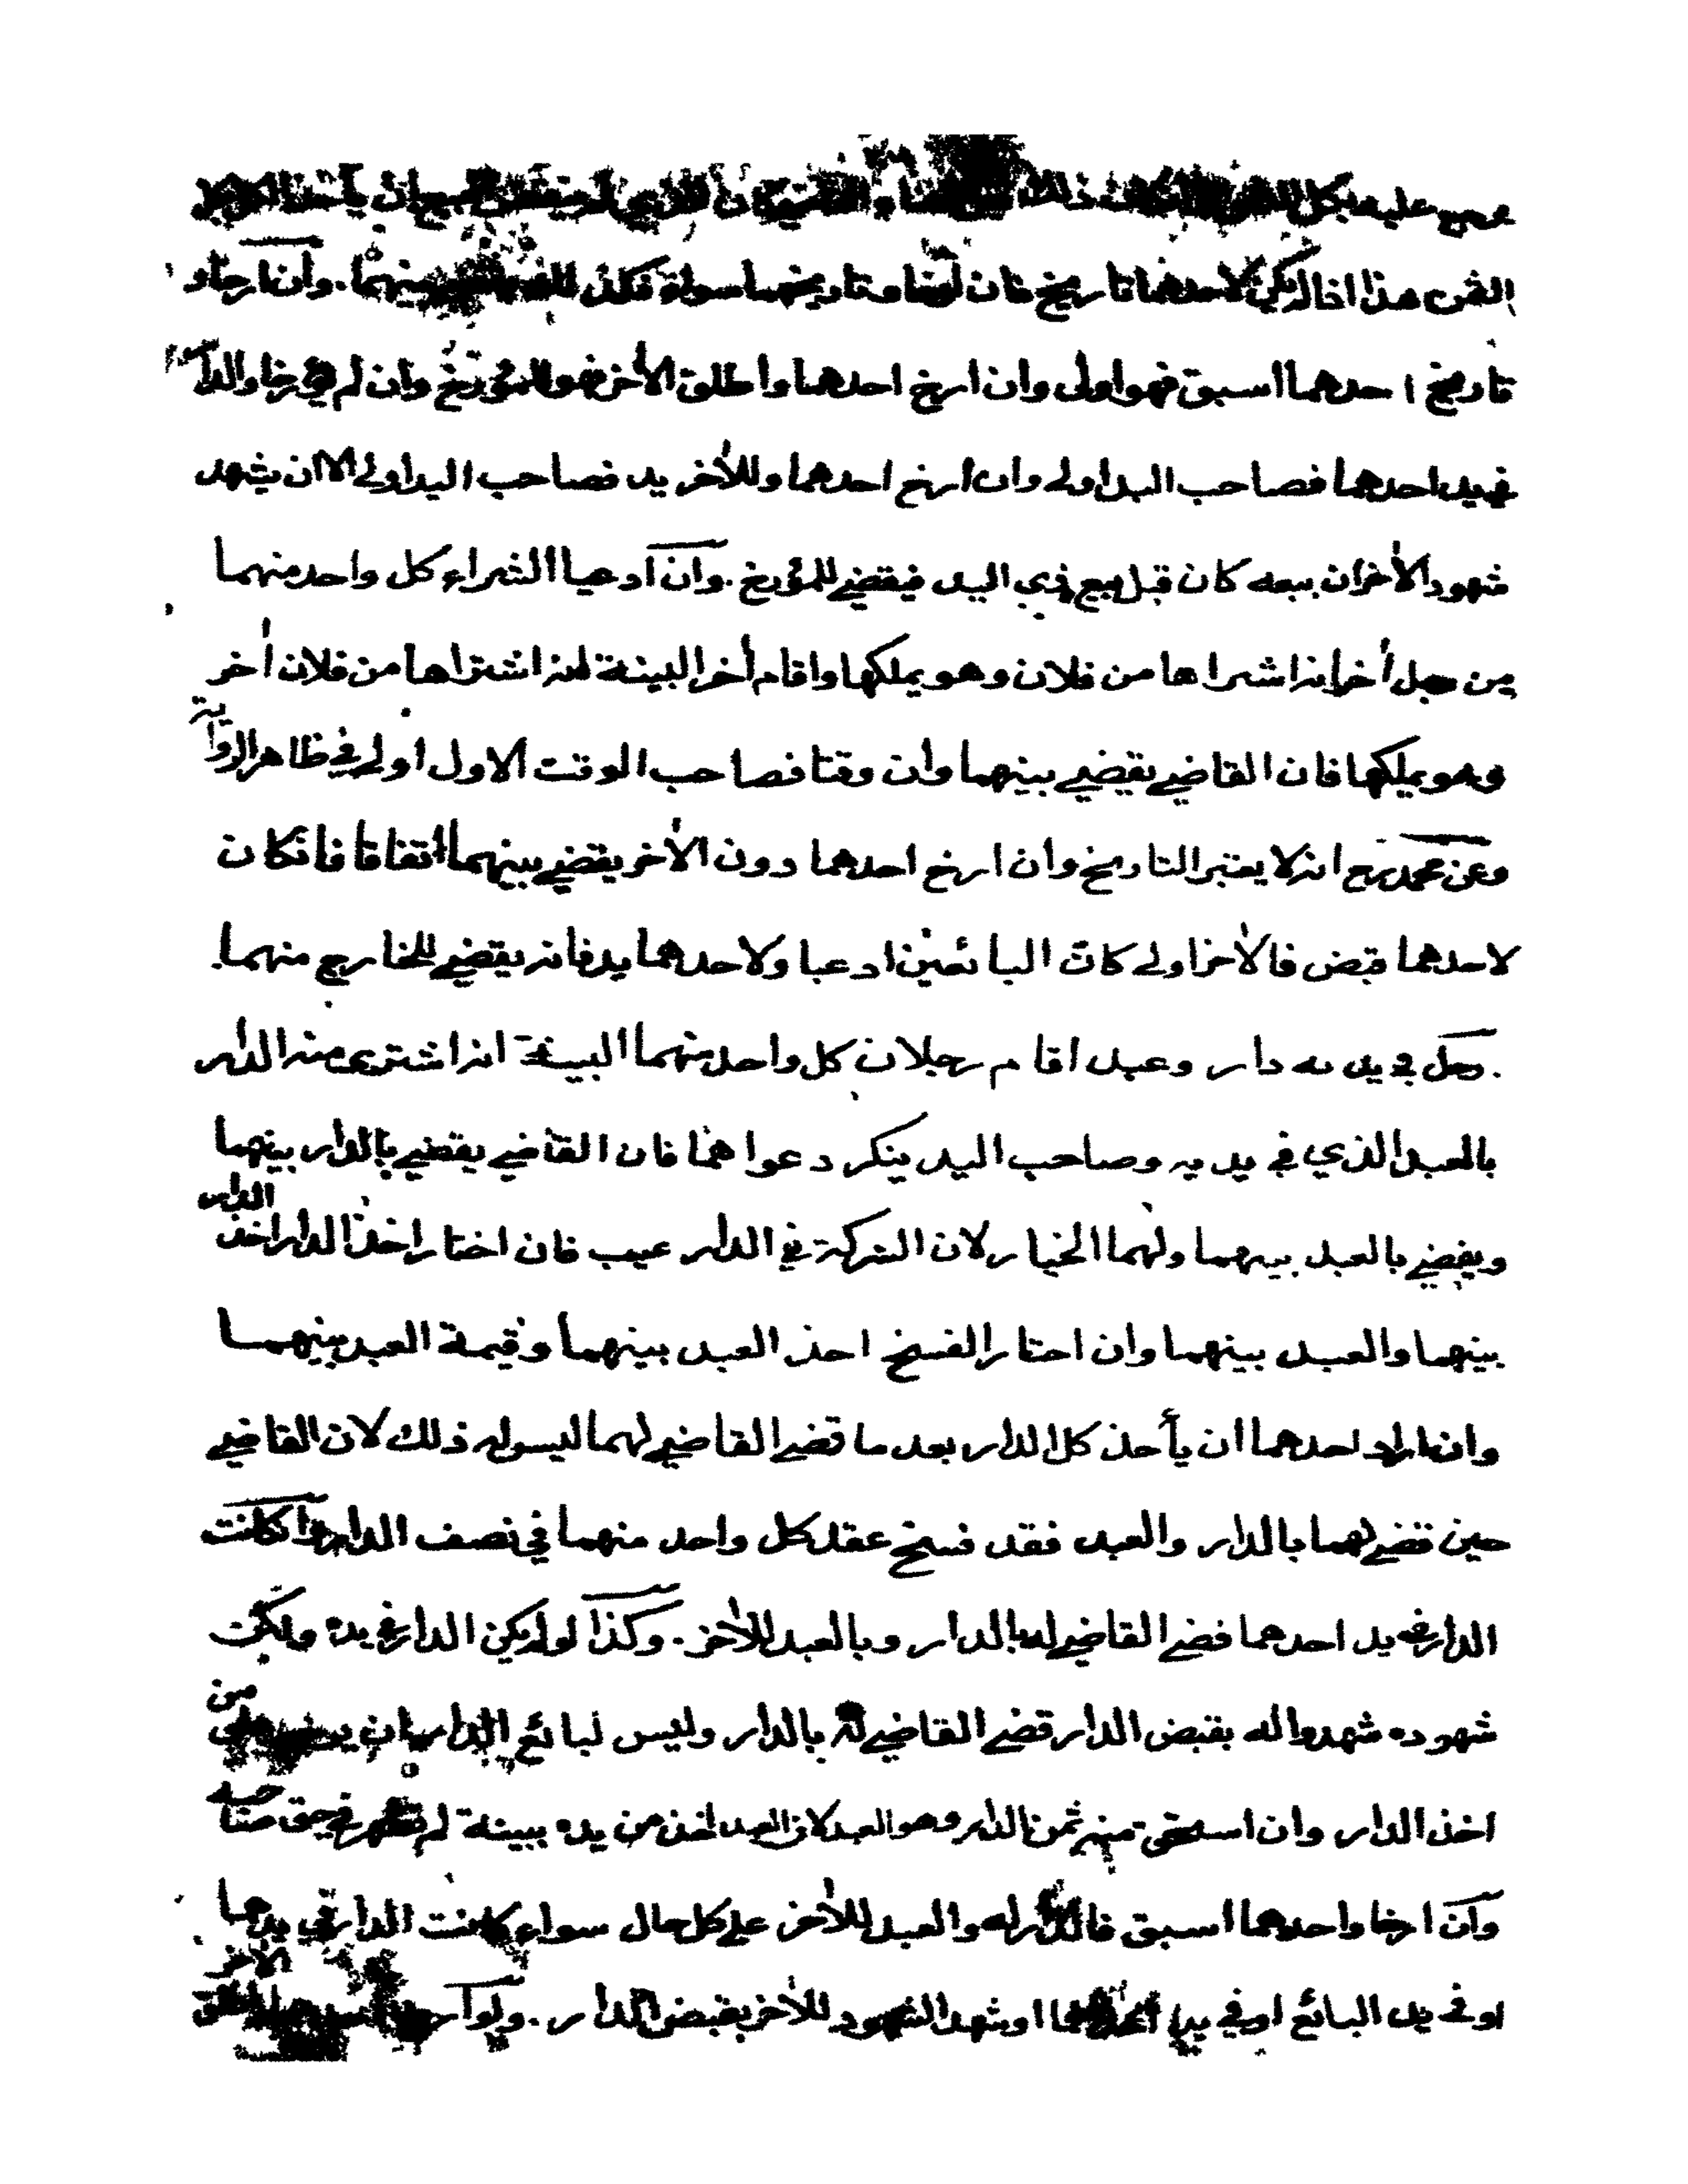 عليه بكل ذلك
الثمن هذا اذا لم يكن لاحدهما تاريخ فان ارخا وتاريخهما سواء فكذلك بينهما . وان ارخا و
تاريخ احدهما اسبق فهو اولى وان ارخ احدهما واطلق الأخر فهو للمؤرخ وان لم يؤرخا والدار
في يد احدهما فصاحب اليد اولى وان ارخ احدهما وللأخر يد فصاحب اليد اولى الا ان يشهد
شهود الأخر ان بيعه كان قبل بيع ذي اليد فيقضي للمؤرخ . وان ادعيا الشراء كل واحد منهما
من رجل أخر انه اشراها من فلان وهو يملكها واقام أخر البينة انه اشتراها من فلان أخر
وهو يملكها فان القاضي يقضي بينهما وان وقتا فصاحب الوقت الاول اولى في ظاهر الرواية
وعن محمد رح انه لا يعتبر التاريخ وان ارخ احدهما دون الأخر يقضي بينهما اتفاقا فان كان
لاحدهما قبض فالأخر اولى كان البائعين ادعيا ولاحدهما يد فانه يقضي للخارج منهما .
. رجل في يديه دار وعبد اقام رجلان كل واحد منهما البينة انه اشترى منه الدار
بالعبد الذي في يديه وصاحب اليد ينكر دعواهما فان القاضي يقضي بالدار بينهما
ويقضي بالعبد بينهما ولهما الخيار لان الشركة في الدار عيب فان اختار اخذ الدار اخذ الدار
بينهما والعبد بينهما وان احتار الفسخ احذ العبد بينهما وقيمة العبد بينهما
وان اراد احدهما ان يأحذ كل الدار بعد ما قضى القاضي لهما ليس له ذلك لان القاضي
حين قضى لهما بالدار والعبد فقد فسخ عقد كل واحد منهما في نصف الدار وان كانت
الدار في يد احدهما قضى القاضي له بالدار وبالعبد للأخر . وكذا لو لم يكن الدار في يده ولكن
شهوده شهدوا له بقبض الدار قضى القاضي له بالدار وليس لبائع الدار ان على من
اخذ الدار وان استحق منه ثمن الدار وهو العبد لان العبد اخذ من يده ببينة لم تظهر في حق صاحبه
وان ارخا واحدهما اسبق فالدار له والعبد للأخر على كل حال سواء كانت الدار في يدهما
او في يد البائع او في يد احدهما او شهد الشهود للأخر بقبض الدار . ولو الأخر